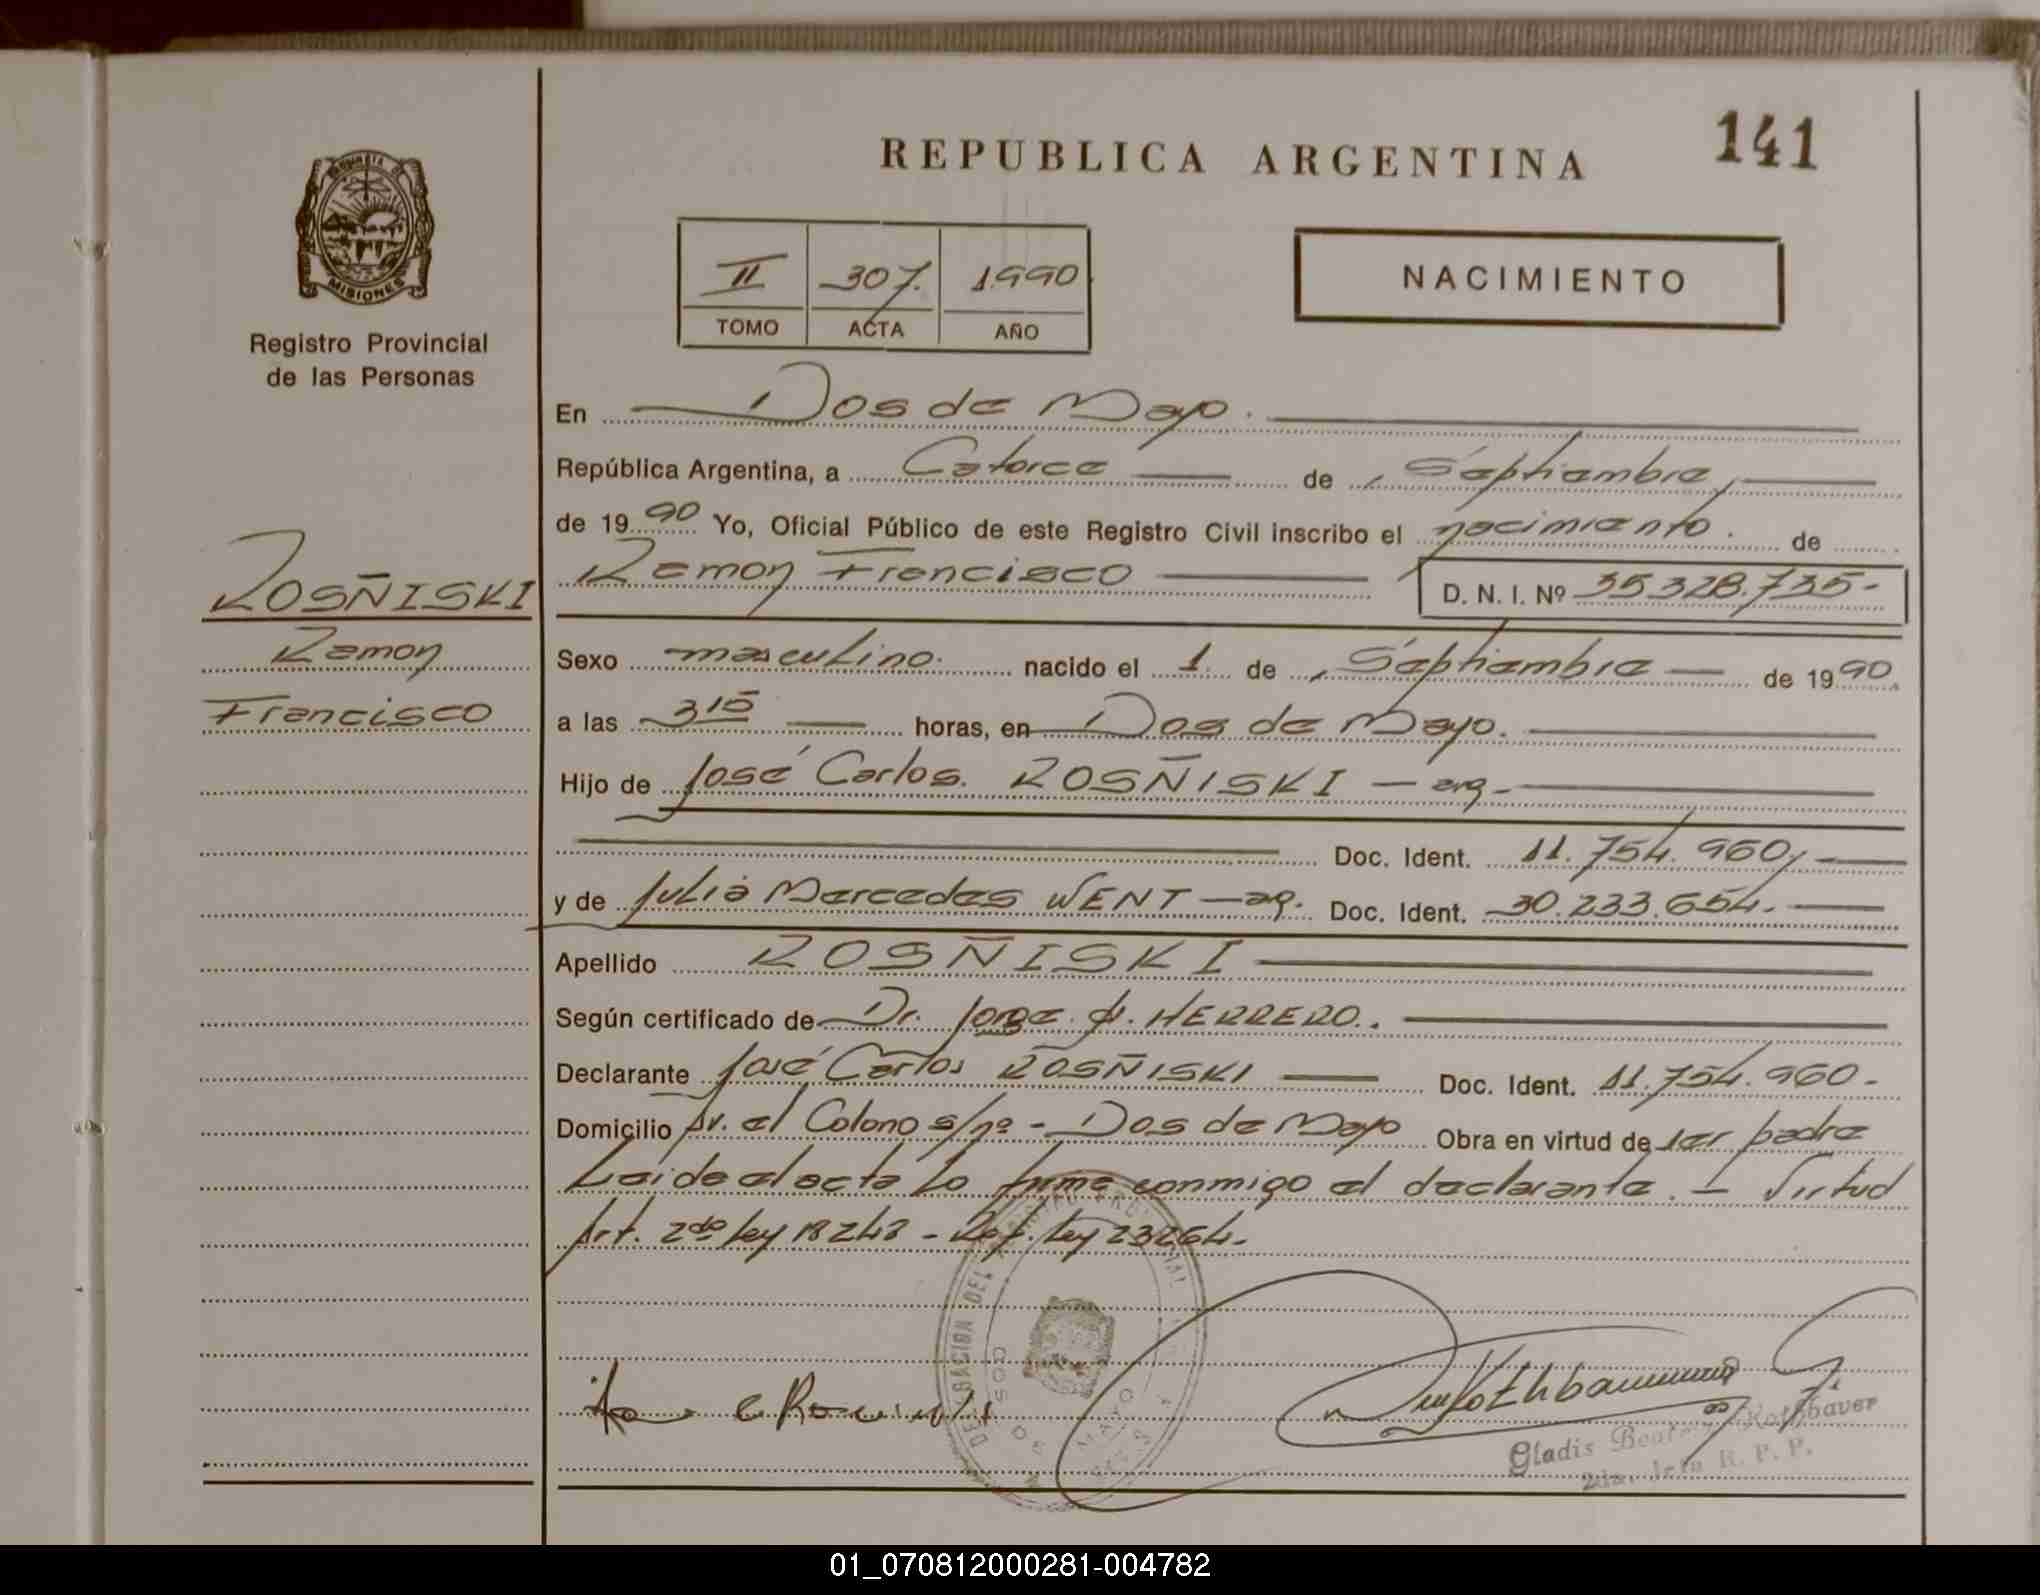 REPUBLICA ARGENTINA
141
MISIONES
Registro Provincial
de las Personas
II 307. 1990
TOMO ACTA AÑO
NACIMIENTO
En Dos de Mayo.
República Argentina, a Catorce de Septiembre,
de 1990 Yo, Oficial Público de este Registro Civil inscribo el nacimiento. de
Ramon Francisco D. N. I. Nº 35328.735-
ROSÑISKI
Ramon
Francisco
Sexo masculino. nacido el 1. de Septiembre de 1990
a las 315 horas, en Dos de Mayo.
Hijo de José Carlos. ROSÑISKI - arg-
Doc. Ident. 11.754.960,-
y de Julia Mercedes WENT - ag. Doc. Ident. 30.233.654.-
Apellido ROSÑISKI
Según certificado de Dr. Jorge A. HERRERO.
Declarante José Carlos ROSÑISKI Doc. Ident. 11.754.960-
Domicilio Av. el Colono s/nº - Dos de Mayo Obra en virtud de ser padre
Leida el acta lo firma conmigo el declarante. - Virtud
Art. 2do Ley 18248 - Ley 23264-
DELEGACION DEL
DOS DE MAYO
Gladis Rothbaver
R. P. P.
01_070812000281-004782